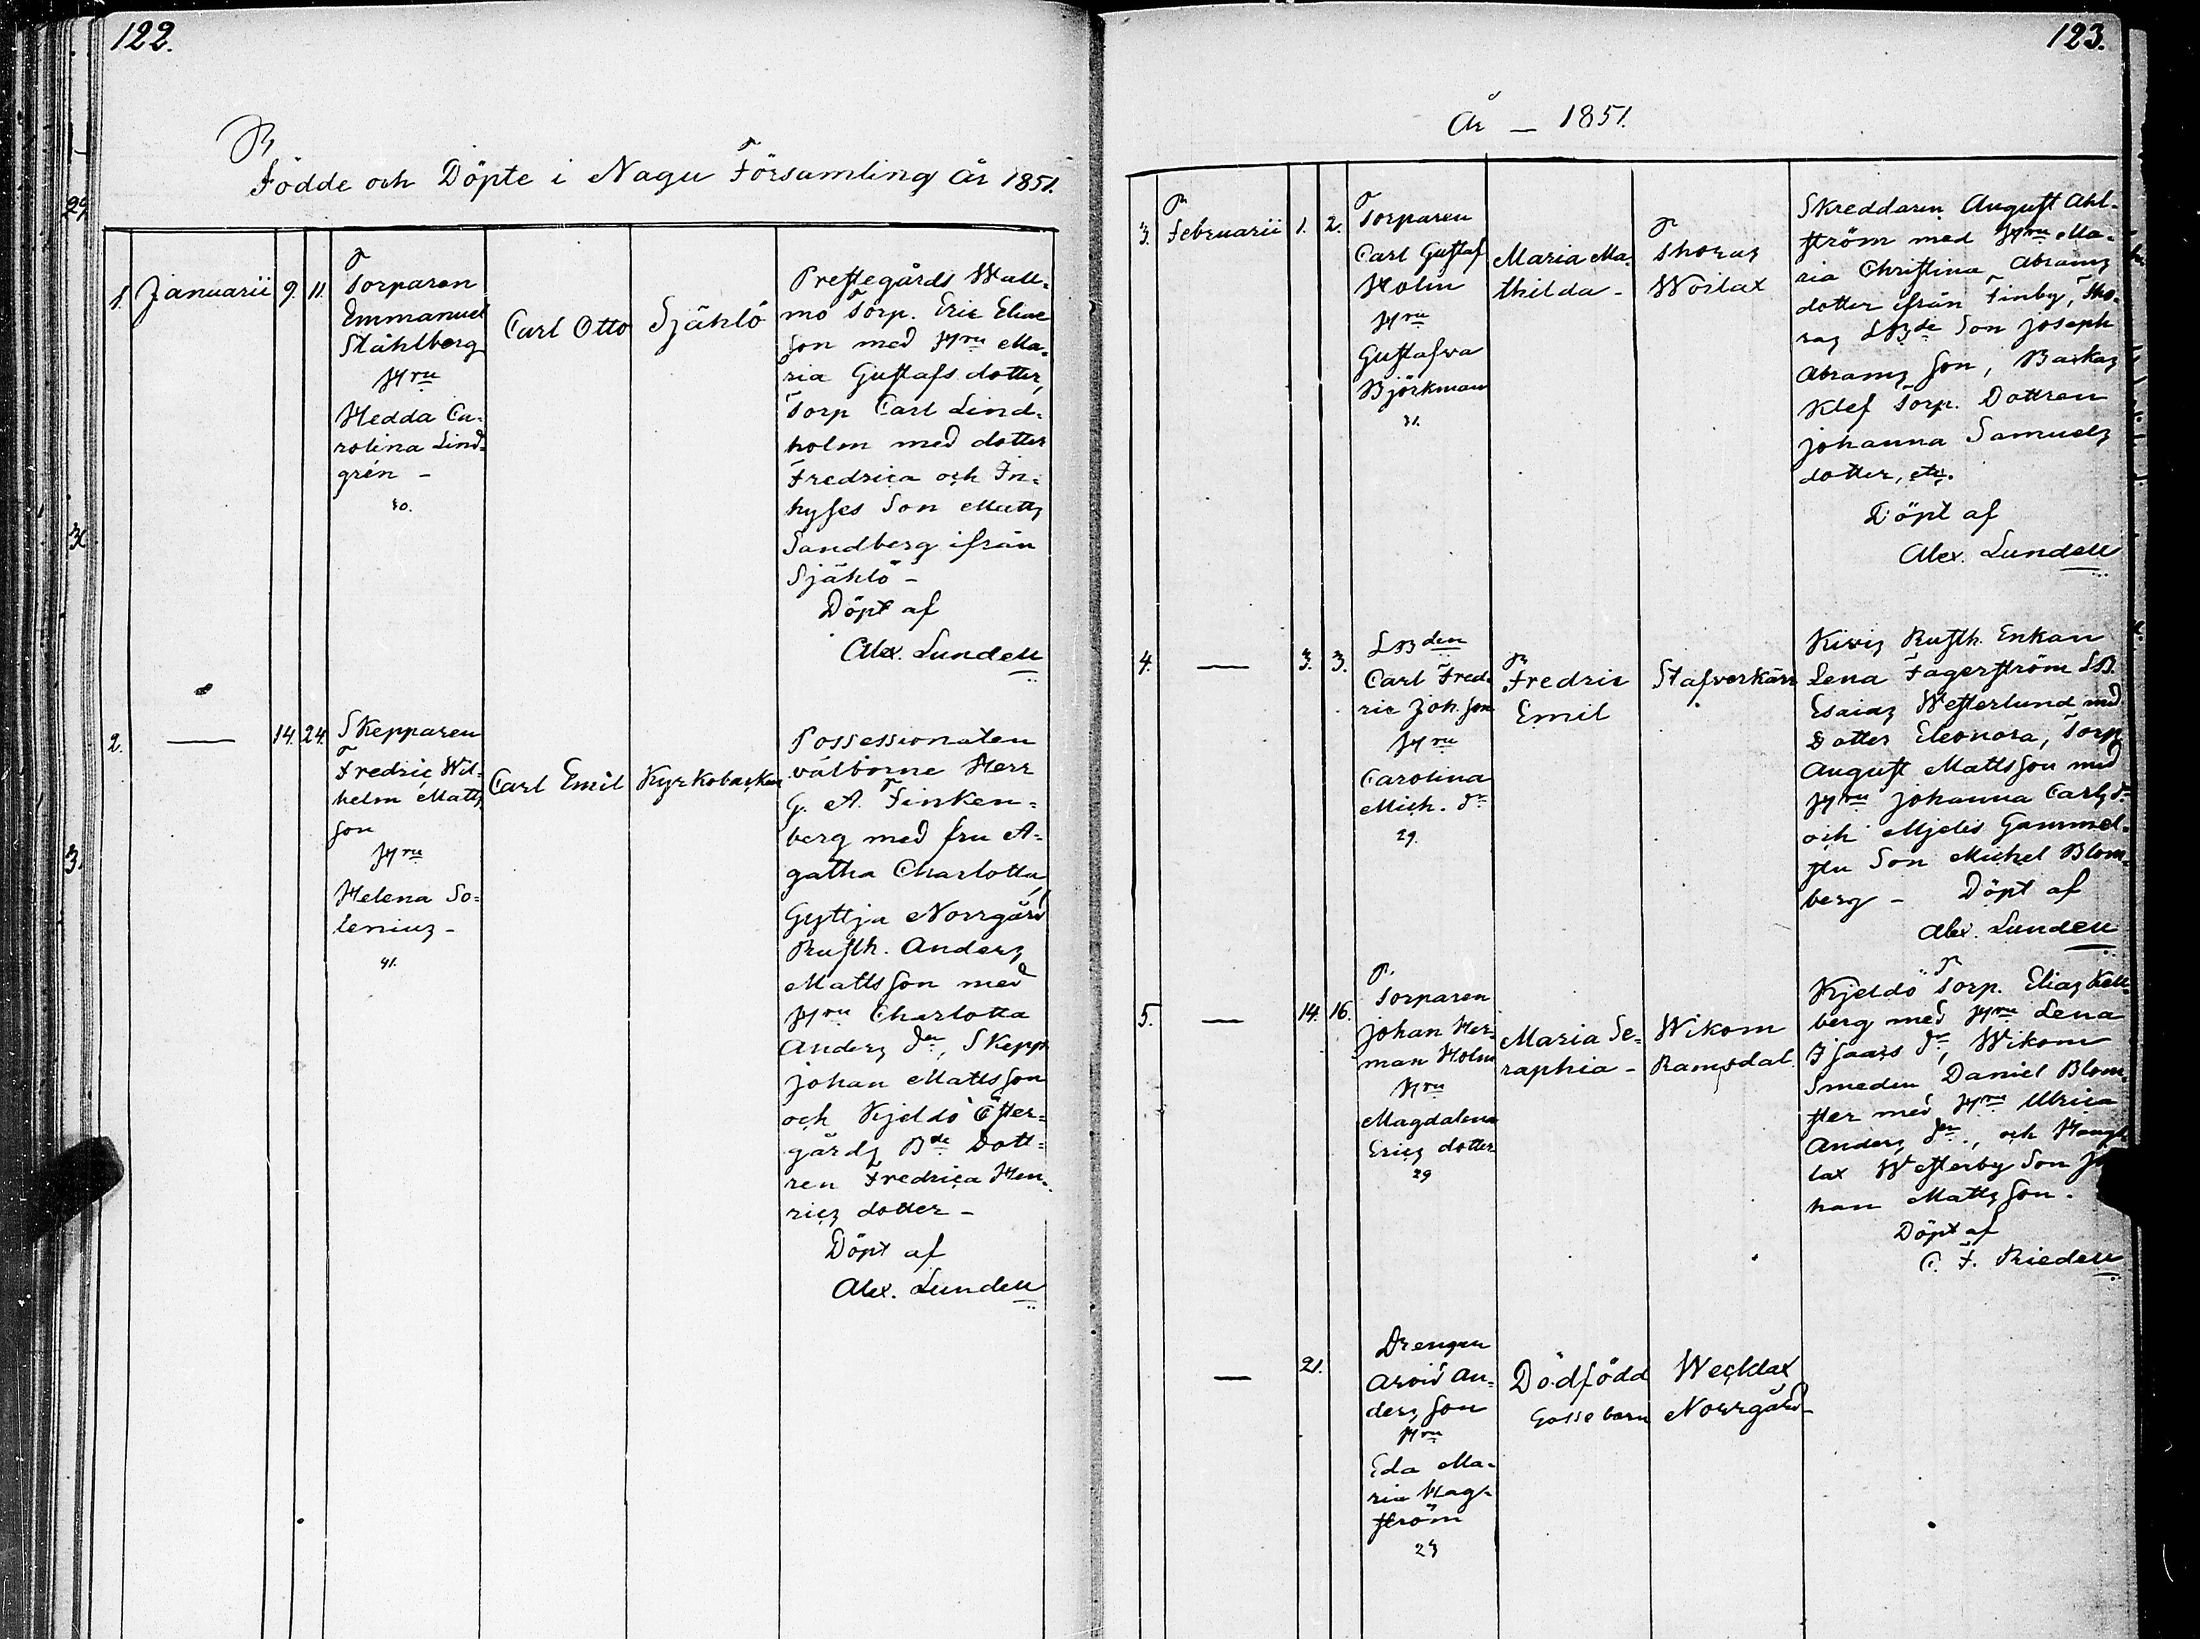 122.
Födde och Döpte i Nagu Församling År 1851.
1. Januarii 9. 11.
Torparen
Emmanuel
Ståhlberg
Hru
Hedda Ca-
rolina Lind-
grén -
30.
Carl Otto
Själlö
Prestegårds Wall-
mo Torp. Eric Eliae
Son med Hru Ma-
ria Gustafs dotter,
Torp Carl Lind-
holm med dotter
Fredrica och In-
hyses Son Matts
Sandberg ifrån
Själlö -
Döpt af
Alex. Lundell
2. — 14. 24.
Skepparen
Fredric Wil-
helm Matts
son
Hru
Helena So-
lenius -
41.
Carl Emil
Kyrkobacken
Possessionaten
välborne Herr
G. A. Finken-
berg med fru A-
gatha Charlotta,
Gyttja Norrgård
Rusth. Anders
Mattsson med
Hru Charlotta
Anders dr, Skepp.
Johan Mattsson
och Kjeldö Öster-
gårds Bde Dott-
ren Fredrica Hen-
rics dotter -
Döpt af
Alex. Lundell
123.
År — 1851.
3. Februarii 1. 2.
Torparen
Carl Gustaf
Holm
Hru
Gustafva
Björkman
31.
Maria Ma-
thilda -
Thoras
Woilax
Skreddaren August Ahl-
ström med Hru Ma-
ria Christina Abrams
dotter ifrån Finby, Tho-
ras LBde Son Joseph
Abrams Son, Barkas
Klef Torp. Dottren
Johanna Samuels
dotter, etc.
Döpt af
Alex. Lundell
4. — 3. 3.
LBden
Carl Fred-
ric Joh. son
Hru
Carolina
Mich. dr
29.
Fredric
Emil
Stafverkärr
Kivis Rusth. Enkan
Lena Fagerström LB.
Esaias Westerlund med
Dotter Eleonora, Torp
August Mattsson med
Hru Johanna Carls dr
och Mjelis Gammel-
stu Son Michel Blom-
berg - Döpt af
Alex. Lundell
5. — 14. 16.
Torparen
Johan Her-
man Holm
Hru
Magdalena
Erics dotter
29
Maria Se-
raphia -
Wikom
Ramsdal
Kjeldö Torp. Elias Kell-
berg med Hru Lena
Isaacs dr, Wikom
Smeden Daniel Blom-
ster med Hru Ulrica
Anders dr, och
lax Westerby Son Jo
han Matts Son.
Döpt af
C. F. Riedell
— 21.
Drengen
Arvid An-
ders Son
Hru
Eda Ma-
ria Hag-
ström
23
Dödfödd
Gossebarn
Wecklax
Norrgård